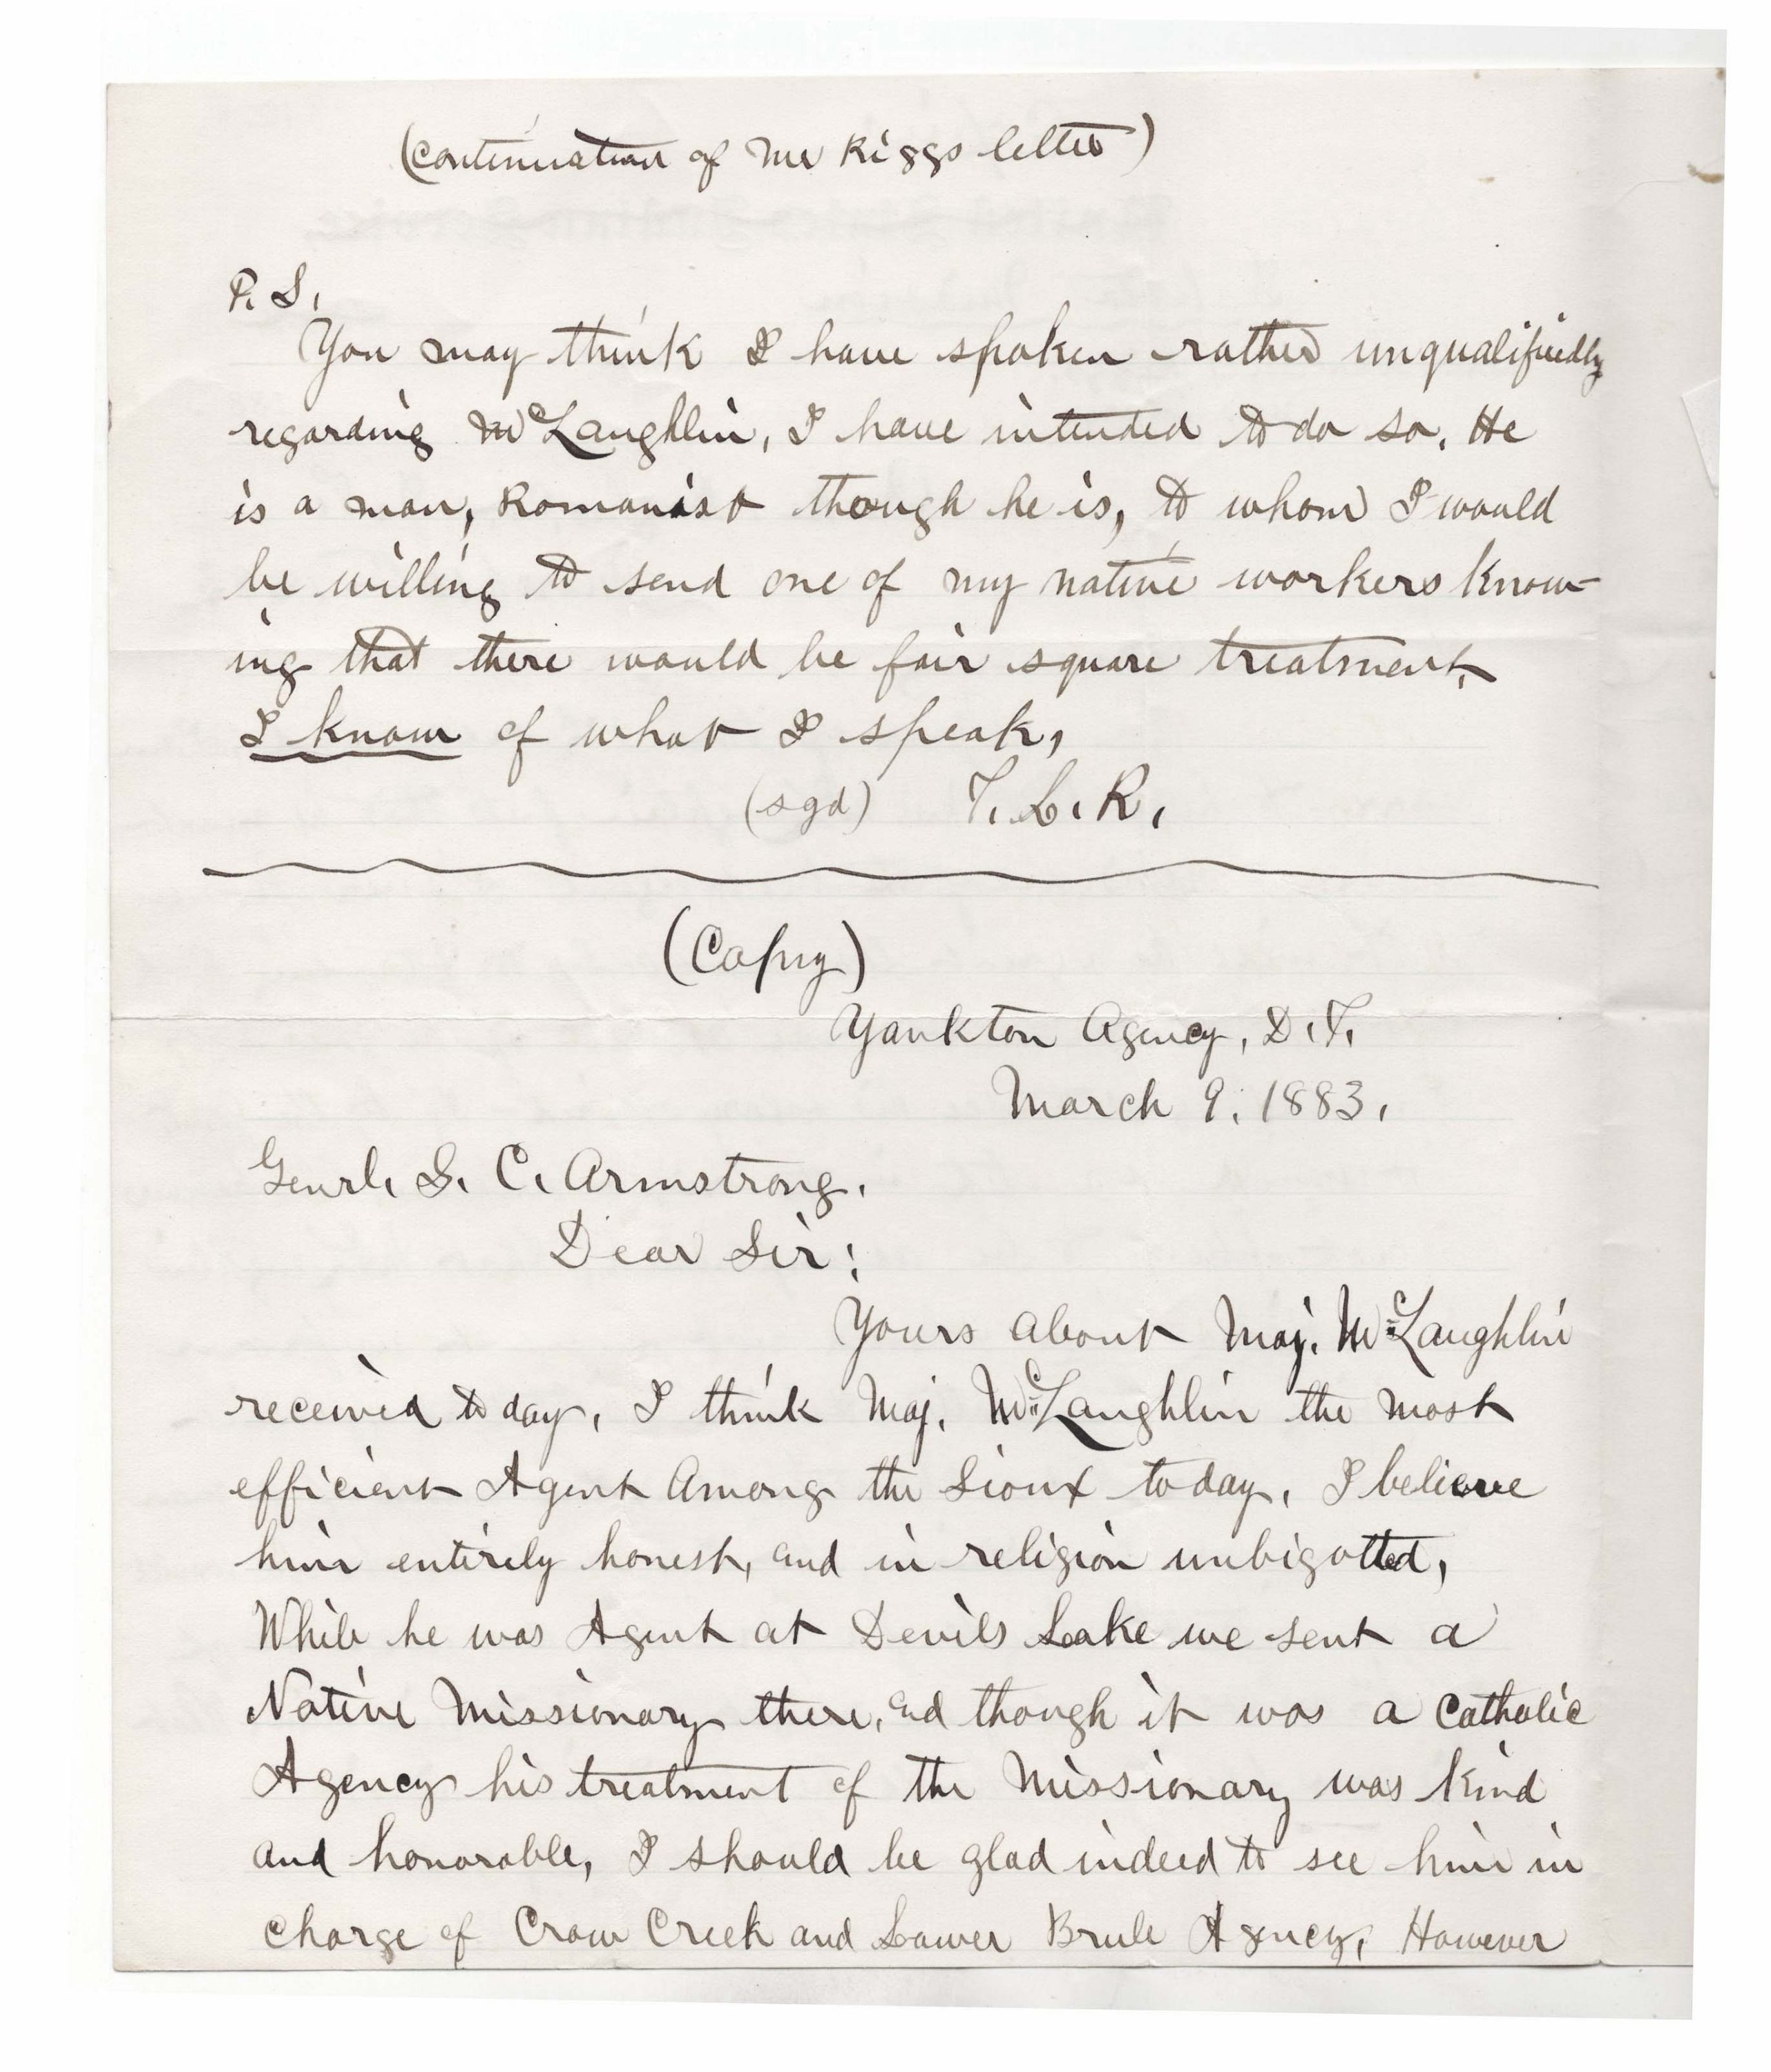 (continuation of Mr Riggs letter)
P. S.
You may think I have spoken rather unqualifiedly
regarding McLaughlin, I have intended to do so. He
is a man, Romanist though he is, to whom I would
be willing to send one of my native workers know-
ing that there would be fair square treatment.
I know of what I speak,
(sgd) T. L. R.
(Copy)
Yankton Agency, D. T.
March 9. 1883.
Genrl. S. C. Armstrong.
Dear Sir:
Yours about Maj. McLaughlin
received to day. I think Maj. McLaughlin the most
efficient Agent Among the Sioux to day. I believe
him entirely honest, and in religion unbigotted,
While he was Agent at Devils Lake we sent a
Native Missionary there, and though it was a Catholic
Agency his treatment of the Missionary was kind
and honorable, I should be glad indeed to see him in
charge of Crow Creek and Lower Brule Agency, However